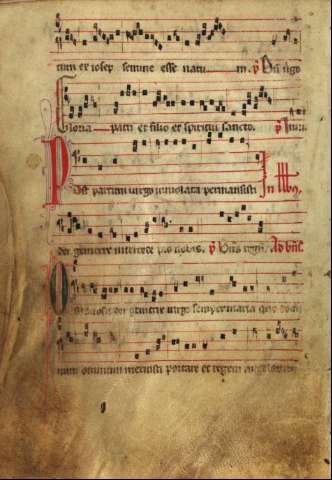 tum ex iosep semine esse natu m. ℣ Dñ ũgo
Gloria patri et filio et spiritui sancto. ℣
Post partum uirgo inuiolata permansisti In
dei genitrix intercede pro nobis. ℣ Ad bñc
dei genitrix uirgo semper maria que
num omnium meruisti portare et regem angelorum